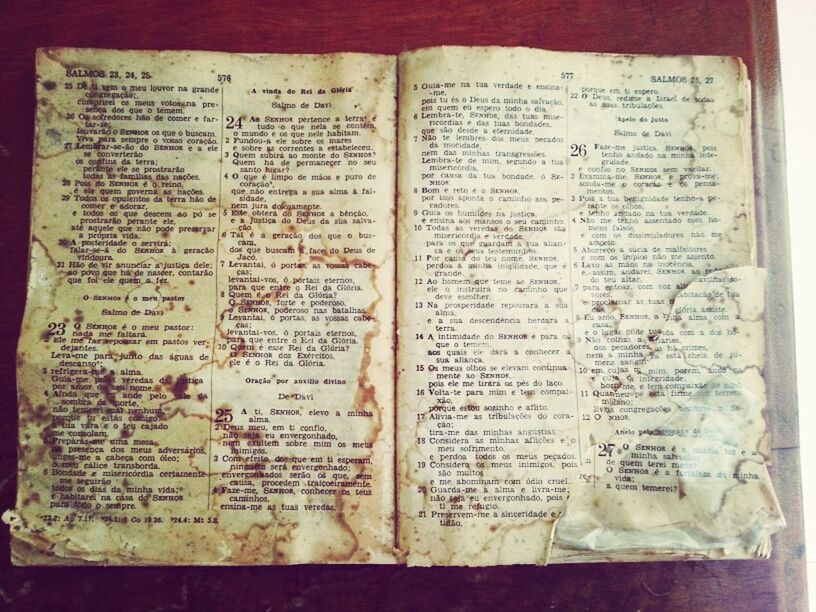 SALMOS 23, 24, 25
576
25 De ti vem o meu louvor na grande
congregação;
cumprirei os meus votos na pre-
sença dos que o temem.
26 Os sofredores hão de comer e far-
tar-se;
louvarão o SENHOR os que o buscam.
Viva para sempre o vosso coração.
27 Lembrar-se-ão do SENHOR e a ele
se converterão
os confins da terra;
perante ele se prostrarão
todas as famílias das nações.
28 Pois do SENHOR é o reino,
é ele quem governa as nações.
29 Todos os opulentos da terra hão de
comer e adorar,
e todos os que descem ao pó se
prostrarão perante ele,
até aquele que não pode preservar
a própria vida.
30 A posteridade o servirá;
falar-se-á do SENHOR à geração
vindoura.
31 Hão de vir anunciar a justiça dele;
ao povo que há de nascer, contarão
que foi ele quem a fez.
O SENHOR é o meu pastor
Salmo de Davi
23 O SENHOR é o meu pastor:
nada me faltará.
2 Ele me faz repousar em pastos ver-
dejantes.
Leva-me para junto das águas de
descanso;
3 refrigera-me a alma.
Guia-me pelas veredas da justiça
por amor do seu nome.
4 Ainda que eu ande pelo vale da
sombra da morte,
não temerei mal nenhum,
porque tu estás comigo:
a tua vara e o teu cajado
me consolam.
5 Preparas-me uma mesa
na presença dos meus adversários,
unges-me a cabeça com óleo;
o meu cálice transborda.
6 Bondade e misericórdia certamente
me seguirão
todos os dias da minha vida;
e habitarei na casa do SENHOR
para todo o sempre.
A vinda do Rei da Glória
Salmo de Davi
24 AO SENHOR pertence a terra e
tudo o que nela se contém,
o mundo e os que nele habitam.
2 Fundou-a ele sobre os mares
e sobre as correntes a estabeleceu.
3 Quem subirá ao monte do SENHOR?
Quem há de permanecer no seu
santo lugar?
4 O que é limpo de mãos e puro de
coração,
que não entrega a sua alma à fal-
sidade,
nem jura dolosamente.
5 Este obterá do SENHOR a bênção,
e a justiça do Deus da sua salva-
ção.
6 Tal é a geração dos que o bus-
cam,
dos que buscam a face do Deus de
Jacó.
7 Levantai, ó portas, as vossas cabe-
ças;
levantai-vos, ó portais eternos,
para que entre o Rei da Glória.
8 Quem é o Rei da Glória?
O SENHOR, forte e poderoso,
o SENHOR, poderoso nas batalhas.
9 Levantai, ó portas, as vossas cabe-
ças;
levantai-vos, ó portais eternos,
para que entre o Rei da Glória.
10 Quem é esse Rei da Glória?
O SENHOR dos Exércitos,
ele é o Rei da Glória.
Oração por auxílio divino
De Davi
25 A TI, SENHOR, elevo a minha
alma.
2 Deus meu, em ti confio,
não seja eu envergonhado,
nem exultem sobre mim os meus
inimigos.
3 Com efeito, dos que em ti esperam,
ninguém será envergonhado;
envergonhados serão os que, sem
causa, procedem traiçoeiramente.
4 Faze-me, SENHOR, conhecer os teus
caminhos,
ensina-me as tuas veredas.
577
SALMOS 26, 27
5 Guia-me na tua verdade e ensina-
-me,
pois tu és o Deus da minha salvação,
em quem eu espero todo o dia.
6 Lembra-te, SENHOR, das tuas mise-
ricórdias e das tuas bondades,
que são desde a eternidade.
7 Não te lembres dos meus pecados
da mocidade,
nem das minhas transgressões.
Lembra-te de mim, segundo a tua
misericórdia,
por causa da tua bondade, ó SE-
NHOR.
8 Bom e reto é o SENHOR,
por isso aponta o caminho aos pe-
cadores.
9 Guia os humildes na justiça,
e ensina aos mansos o seu caminho.
10 Todas as veredas do SENHOR são
misericórdia e verdade
para os que guardam a sua alian-
ça e os seus testemunhos.
11 Por causa do teu nome, SENHOR,
perdoa a minha iniqüidade, que é
grande.
12 Ao homem que teme ao SENHOR,
ele o instruirá no caminho que
deve escolher.
13 Na prosperidade repousará a sua
alma,
e a sua descendência herdará a
terra.
14 A intimidade do SENHOR é para os
que o temem,
aos quais ele dará a conhecer a
sua aliança.
15 Os meus olhos se elevam continua-
mente ao SENHOR,
pois ele me tirará os pés do laço.
16 Volta-te para mim e tem compai-
xão,
porque estou sozinho e aflito.
17 Alivia-me as tribulações do cora-
ção;
tira-me das minhas angústias.
18 Considera as minhas aflições e o
meu sofrimento,
e perdoa todos os meus pecados.
19 Considera os meus inimigos, pois
são muitos
e me abominam com ódio cruel.
20 Guarda-me a alma e livra-me;
não seja eu envergonhado, pois em
ti me refugio.
21 Preservem-me a sinceridade e a re-
tidão,
porque em ti espero.
22 Ó Deus, redime a Israel de todas
as suas tribulações.
Apelo do justo
Salmo de Davi
26 Faze-me justiça, SENHOR, pois
tenho andado na minha inte-
gridade,
e confio no SENHOR sem vacilar.
2 Examina-me, SENHOR, e prova-me;
sonda-me o coração e os pensa-
mentos.
3 Pois a tua benignidade tenho-a pe-
rante os olhos,
e tenho andado na tua verdade.
4 Não me tenho assentado com ho-
mens falsos,
e com os dissimuladores não me
associo.
5 Aborreço a súcia de malfeitores
e com os ímpios não me assento.
6 Lavo as mãos na inocência,
e, assim, andarei, SENHOR, ao
do teu altar,
7 para entoar, com voz
vores,
e proclamar as tuas
8 Eu amo, SENHOR, a
casa,
e o lugar onde
glória assiste.
9 Não colhas a
dos pecadores,
nem a minha
mens sangui
10 em cujas
integridade,
livra-me, e tem compaixão de mim
nas congregações
12 O
27 O SENHOR é a minha luz e a
minha salvação;
de quem terei medo?
O SENHOR é a fortaleza da minha
vida;
a quem temerei?